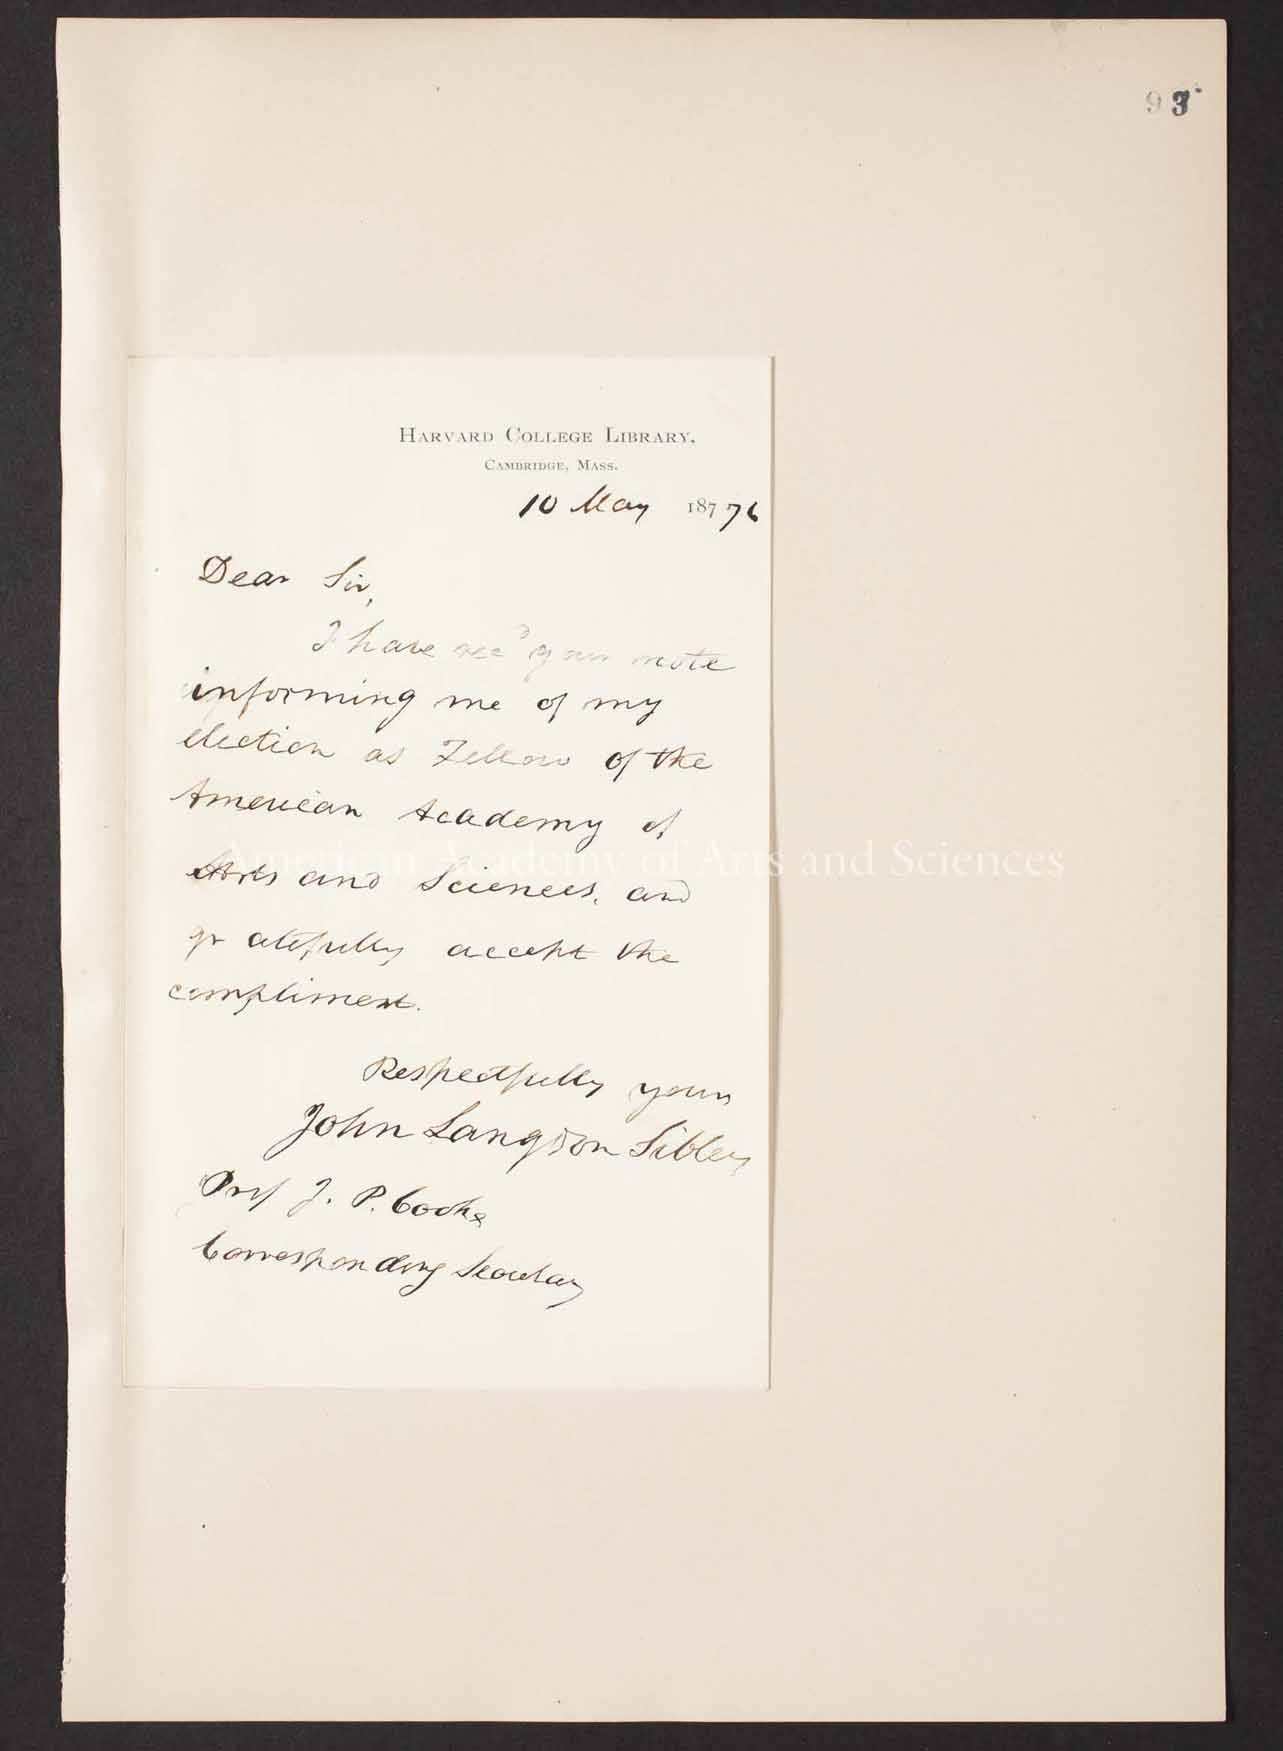 93
HARVARD COLLEGE LIBRARY,
CAMBRIDGE, MASS.
10 May 187 76
Dear Sir,
I have recd your note
informing me of my
election as Fellow of the
American Academy of
Arts and Sciences, and
gratefully accept the
compliment.
Respectfully yours
John Langdon Sibley
Prof J. P. Cooke
Corresponding Secretary
American Academy of Arts and Sciences